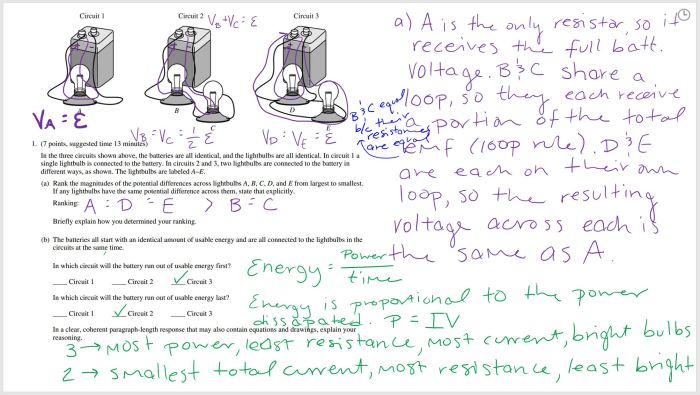 Circuit 1
Circuit 2
Circuit 3
VB + VC = ε
A
B
C
D
E
VA = ε
VB = VC = 1/2 ε
VD = VE = ε
B & C equal
b/c their
resistances
are equal
a) A is the only resistor, so it
receives the full batt.
voltage. B & C share a
loop, so they each receive
a portion of the total
emf (loop rule). D & E
are each on their own
loop, so the resulting
voltage across each is
the same as A.
1. (7 points, suggested time 13 minutes)
In the three circuits shown above, the batteries are all identical, and the lightbulbs are all identical. In circuit 1 a
single lightbulb is connected to the battery. In circuits 2 and 3, two lightbulbs are connected to the battery in
different ways, as shown. The lightbulbs are labeled A–E.
(a) Rank the magnitudes of the potential differences across lightbulbs A, B, C, D, and E from largest to smallest.
If any lightbulbs have the same potential difference across them, state that explicitly.
Ranking: A = D = E > B = C
Briefly explain how you determined your ranking.
(b) The batteries all start with an identical amount of usable energy and are all connected to the lightbulbs in the
circuits at the same time.
In which circuit will the battery run out of usable energy first?
___ Circuit 1 ___ Circuit 2 ✓ Circuit 3
In which circuit will the battery run out of usable energy last?
___ Circuit 1 ✓ Circuit 2 ___ Circuit 3
In a clear, coherent paragraph-length response that may also contain equations and drawings, explain your
reasoning.
Energy = Power / time
Energy is proportional to the power
dissapated. P = IV
3 → most power, least resistance, most current, bright bulbs
2 → smallest total current, most resistance, least bright